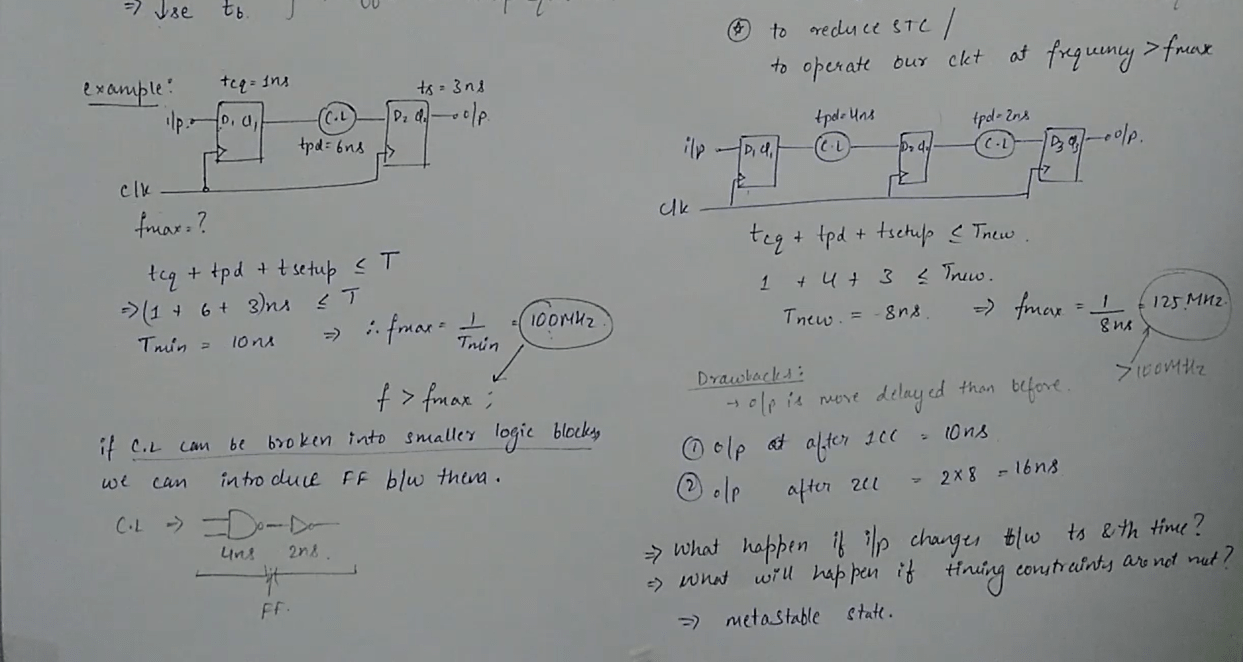 ⇒ ↓se tb.
example:
tcq = 1ns
ts = 3ns
i/p
D1 Q1
C.L
D2 Q2
o/p.
tpd = 6ns
clk
fmax = ?
tcq + tpd + tsetup ≤ T
⇒ (1 + 6 + 3)ns ≤ T
Tmin = 10ns ⇒ ∴ fmax = 1/Tmin = 100MHz.
f > fmax ;
if C.L can be broken into smaller logic blocks,
we can introduce FF b/w them.
C.L ⇒
4ns 2ns.
FF.
to reduce STC /
to operate our ckt at frequency > fmax
tpd = 4ns
tpd = 2ns
i/p
D1 Q1
C.L
D2 Q2
C.L
D3 Q3
o/p.
clk
tcq + tpd + tsetup ≤ Tnew.
1 + 4 + 3 ≤ Tnew.
Tnew. = 8ns. ⇒ fmax = 1/8ns = 125 MHz.
>100MHz
Drawbacks:
→ o/p is more delayed than before.
① o/p at after 1CC = 10ns
② o/p after 2CC = 2x8 = 16ns
⇒ What happen if i/p changes b/w ts & th time?
⇒ What will happen if timing constraints are not met?
⇒ metastable state.